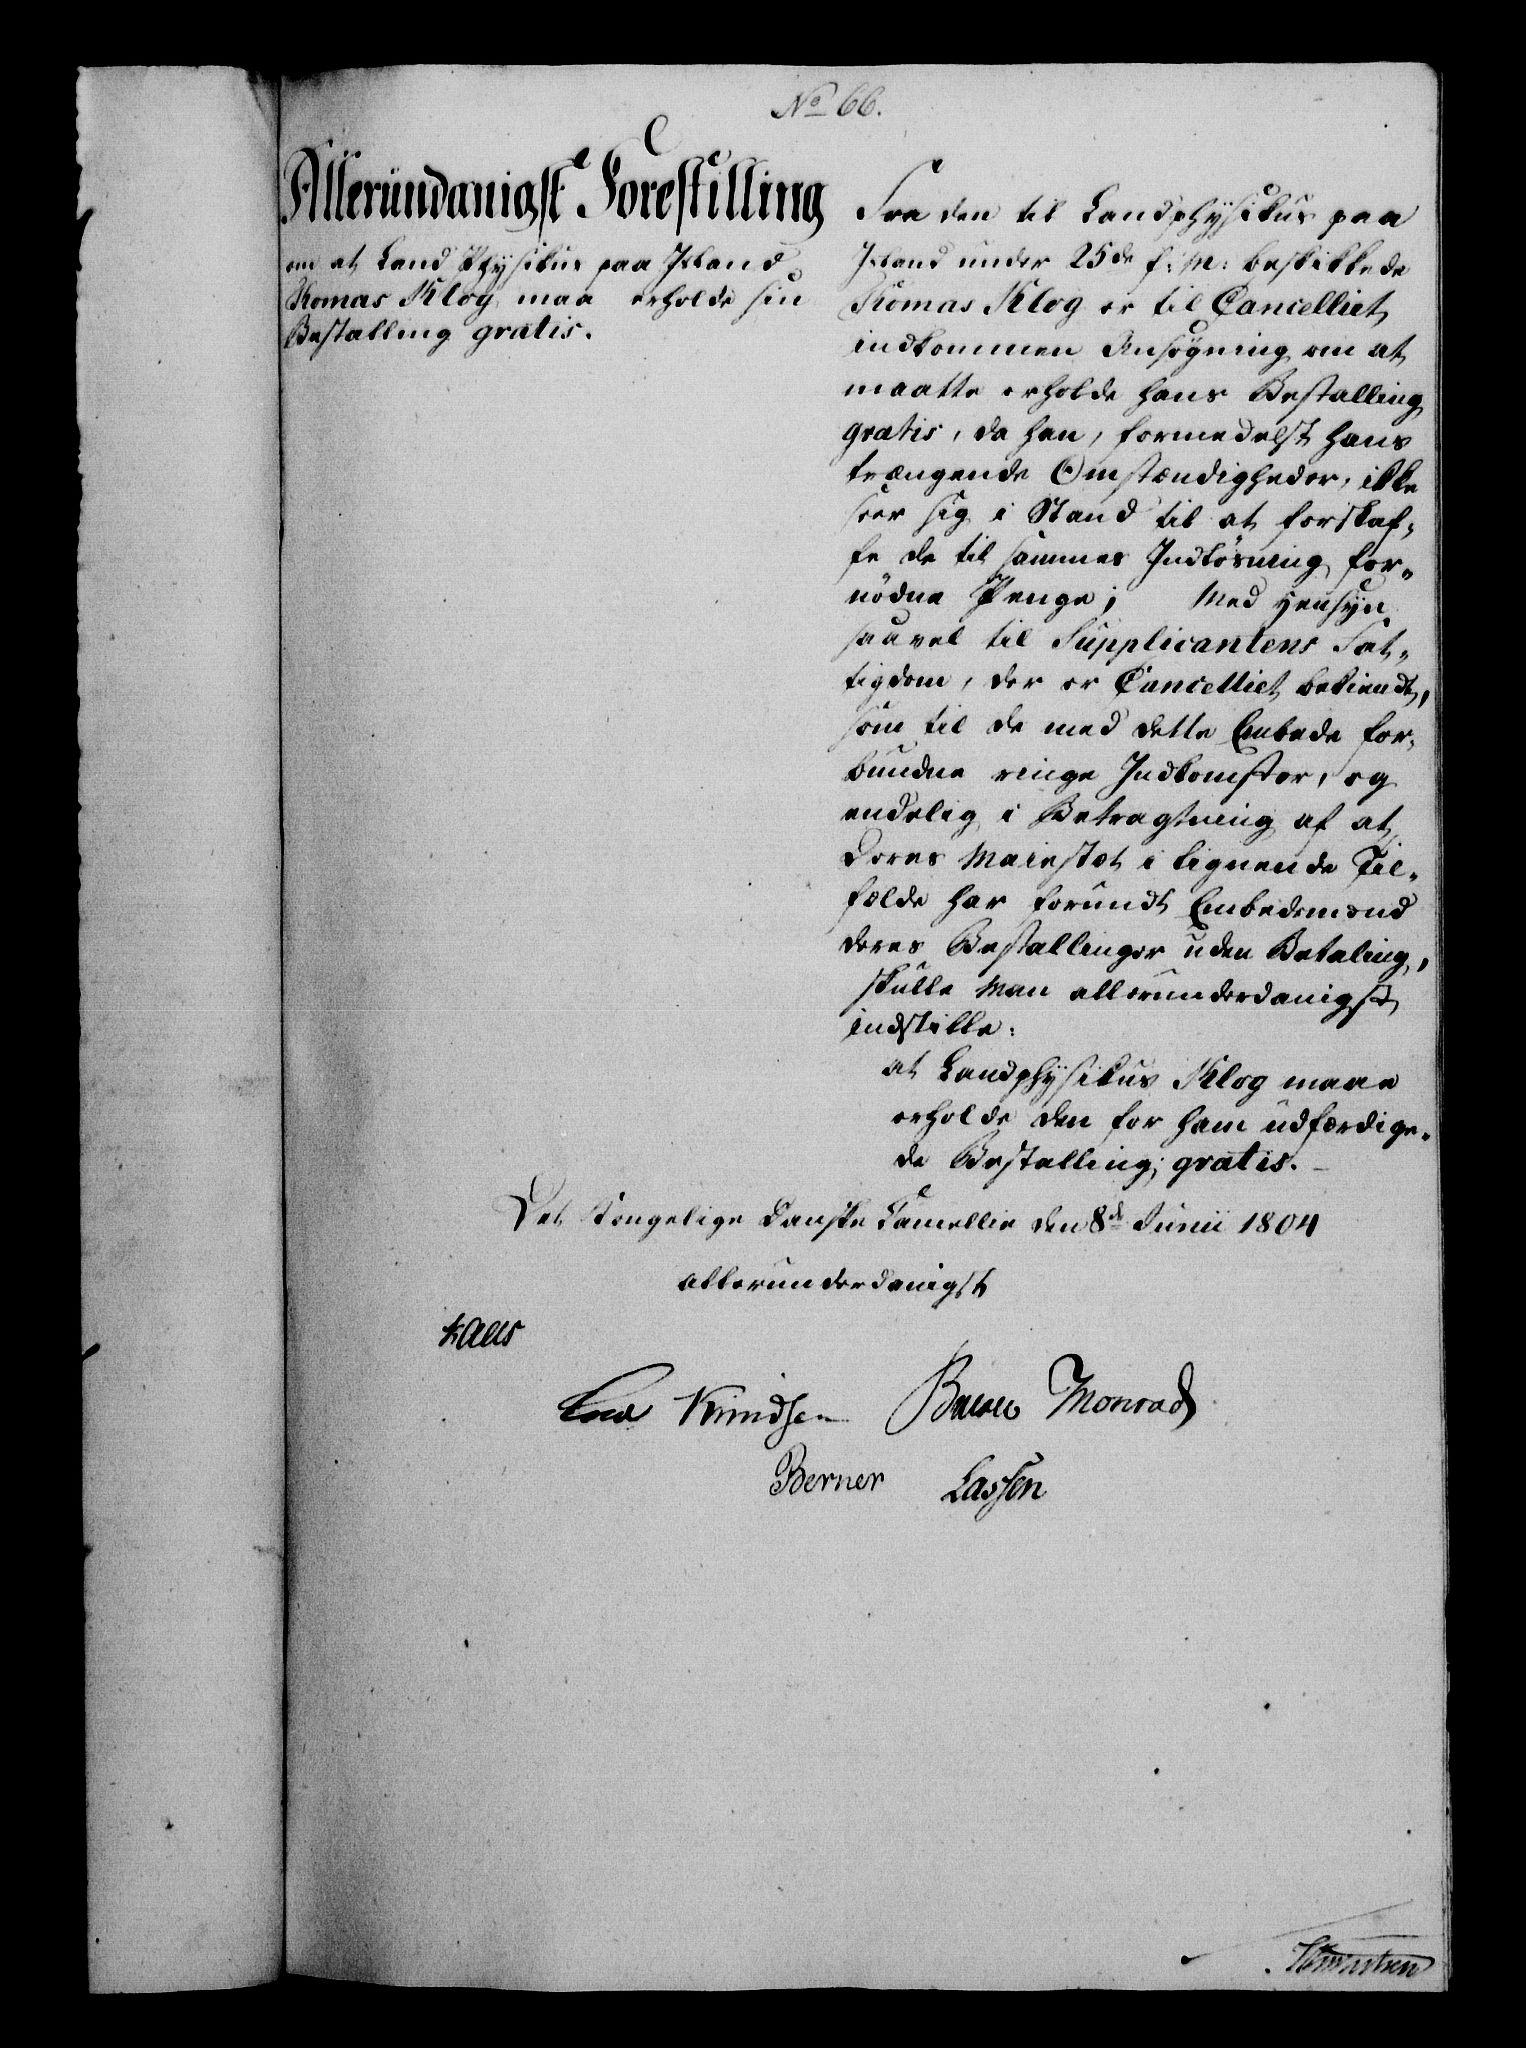 No 66.
Allerundanigst Forestilling
om at Land Physikus paa Island
Thomas Klog maa erholde sin
Bestalling gratis.
Fra den til Landphysikus paa
Island under 25de f: M: beskikkede
Thomas Klog er til Cancelliet
indkommen Ansøgning om at
maatte erholde hans Bestalling
gratis, da han, formedelst hans
trængende Omstændigheder, ikke
seer sig i Stand til at forskaf-
fe de til sammes Indløsning for-
nødne Penge; Med Hensyn
saavel til Supplicantens Fat-
tigdom, der er Cancelliet bekiendt,
som til de med dette Embede for-
bundne ringe Indkomster, og
endelig i Betragtning af at
Deres Maiestæt i lignende Til-
fælde har forundt Embedsmænd
deres Bestallinger uden Betaling,
skulle Man allerunderdanigst
indstille:
at Landphysikus Klog maae
erholde den for ham udfærdige-
de Bestalling; gratis.
Det Kongelige Danske Cancellie den 8de Junii 1804
allerunderdanigst
Kaas
Knudsen Bülow Monrad
Berner Lassen